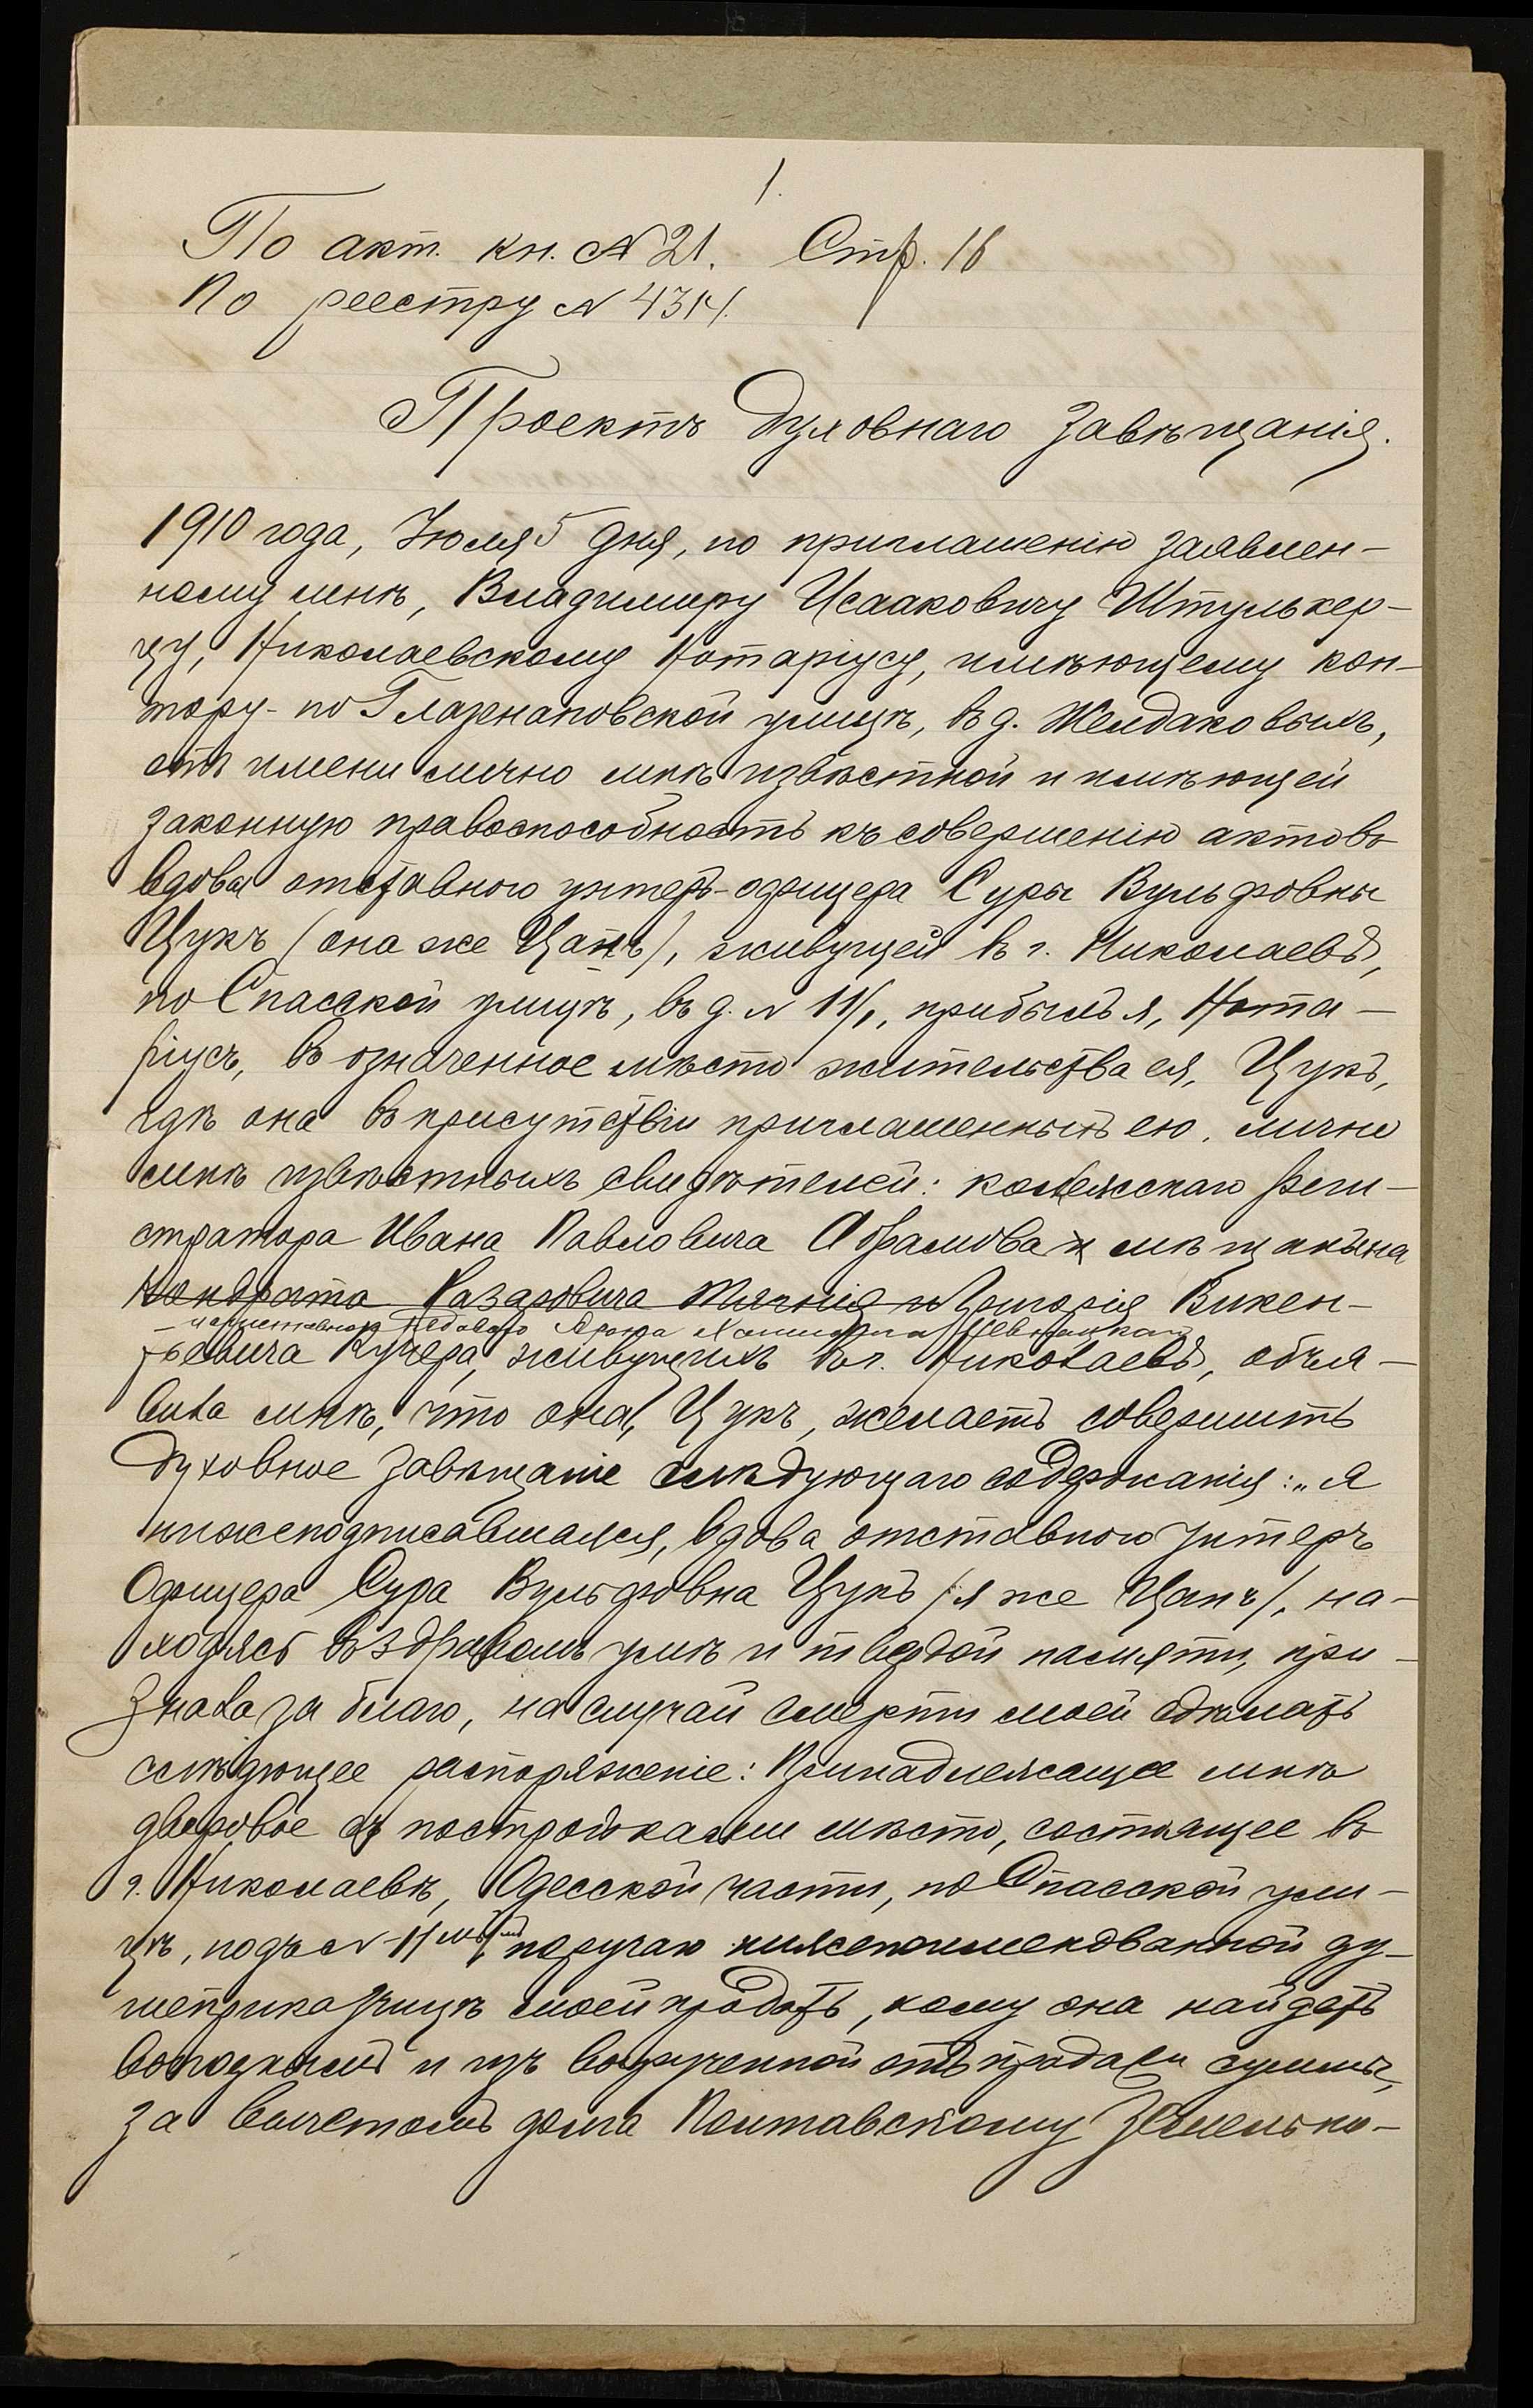 1.
По акт. кн. № 21. Стр. 18
По реестру № 4314.
Проектъ духовнаго завѣщанія.
1910 года, Іюля 5 дня, по приглашенію заявлен-
ному мнѣ, Владимиру Исааковичу Штулькер-
цу, Николаевскому Нотаріусу, имѣющему кон-
тору по Глазенаповской улицѣ, въ д. Желдаковыхъ,
отъ имени лично мнѣ извѣстной и имѣющей
законную правоспособность къ совершенію актовъ
вдовы отставного унтеръ-офицера Суры Вульфовны
Цукъ (она же Цанъ), живущей въ г. Николаевѣ,
по Спасской улицѣ, въ д. № 11/1, прибылъ я, Нота-
ріусъ, въ означенное мѣсто жительства ея, Цукъ,
гдѣ она въ присутствіи приглашенныхъ ею, лично
мнѣ извѣстныхъ свидѣтелей: коллежскаго реги-
стратора Ивана Павловича Абрамова и мѣщанина
Кондрата Назаровича и Григорія Викен-
тьевича Кучера, живущихъ въ г. Николаевѣ, объя-
вила мнѣ, что она, Цукъ, желаетъ совершить
духовное завѣщаніе слѣдующаго содержанія: „Я
нижеподписавшаяся, вдова отставного унтеръ
Офицера Сура Вульфовна Цукъ (я же Цанъ), на-
ходясь въ здравомъ умѣ и твердой памяти, при-
знала за благо, на случай смерти моей сдѣлать
слѣдующее распоряженіе: Принадлежащее мнѣ
дворовое съ постройками мѣсто, состоящее въ
г. Николаевѣ, Одесской части, по Спасской ули-
цѣ, подъ № 11 поручаю нижепоименованной ду-
шеприказчицѣ моей продать, кому она найдетъ
возможнымъ и изъ вырученной отъ продажи суммы,
за вычетомъ долга Полтавскому Земельно-